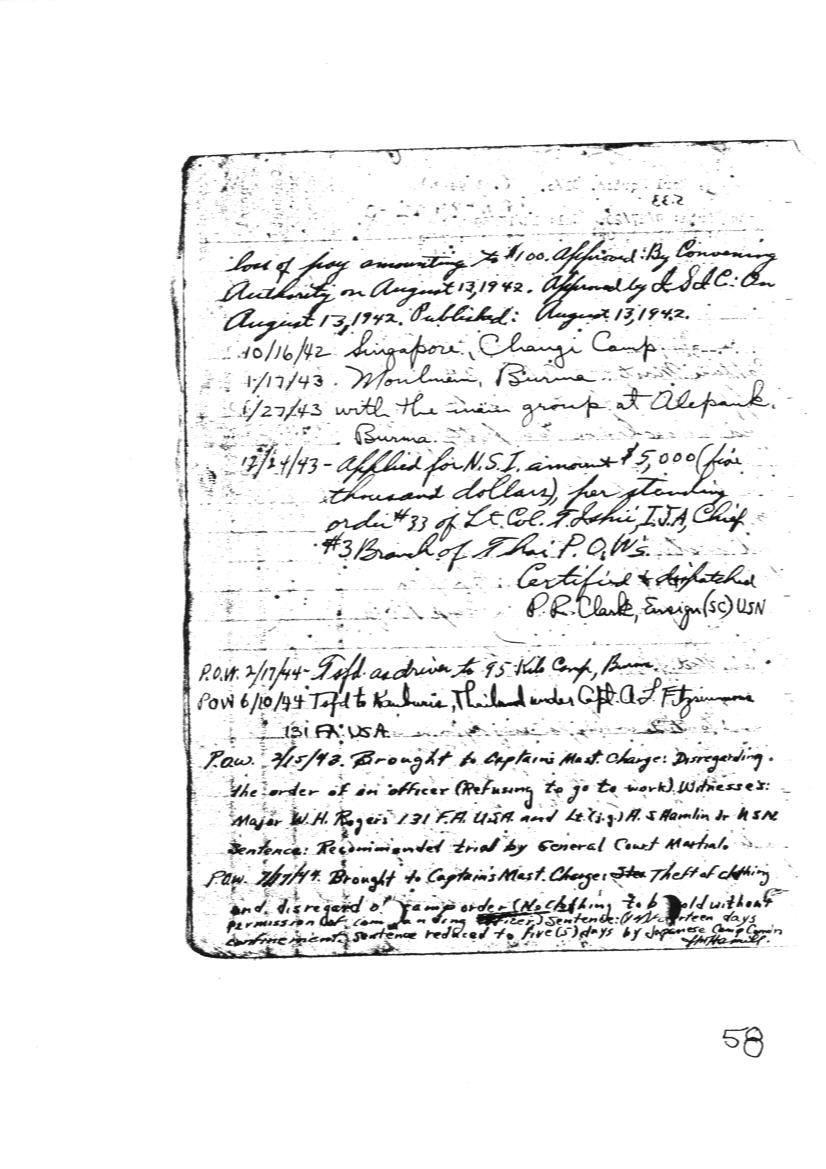 5-33
loss of pay amounting to $100. Approved: By Convening
Authority on August 13, 1942. Approved by I.S.I.C: On
August 13, 1942. Published: August 13, 1942.
10/16/42 Singapore, Changi Camp
1/17/43. Moulmein, Burma
1/27/43 with the main group at Alepauk,
Burma.
12/24/43 - Applied for N.S.I. amount $5,000 (five
thousand dollars), per standing
order #33 of Lt. Col. Ishii, I.J.A, Chief
#3 Branch of Thai P.O.W's.
Certified & dispatched
P.R. Clark, Ensign (SC) USN
P.O.W. 2/17/44 - Tsfd. as driver to 95 Kilo Camp, Burma.
POW 6/10/44 Tsfd to Thailand under Capt. A L Fitzsimmons
131 FA USA
P.O.W. 2/15/43. Brought to Captains Mast. Charge: Disregarding
the order of an officer (Refusing to go to work). Witnesses:
Major W.H. Rogers 131 F.A. U.S.A. and Lt. (j.g.) H. S Hamlin Jr USN
Sentence: Recommended trial by General Court Martial.
P.O.W. 7/17/44. Brought to Captains Mast. Charge: Theft of clothing
and disregard of camp order (No Clothing to be sold without
permission of commanding officer) Sentence: (14) fourteen days
confinement. Sentence reduced to five (5) days by Japanese Camp
58